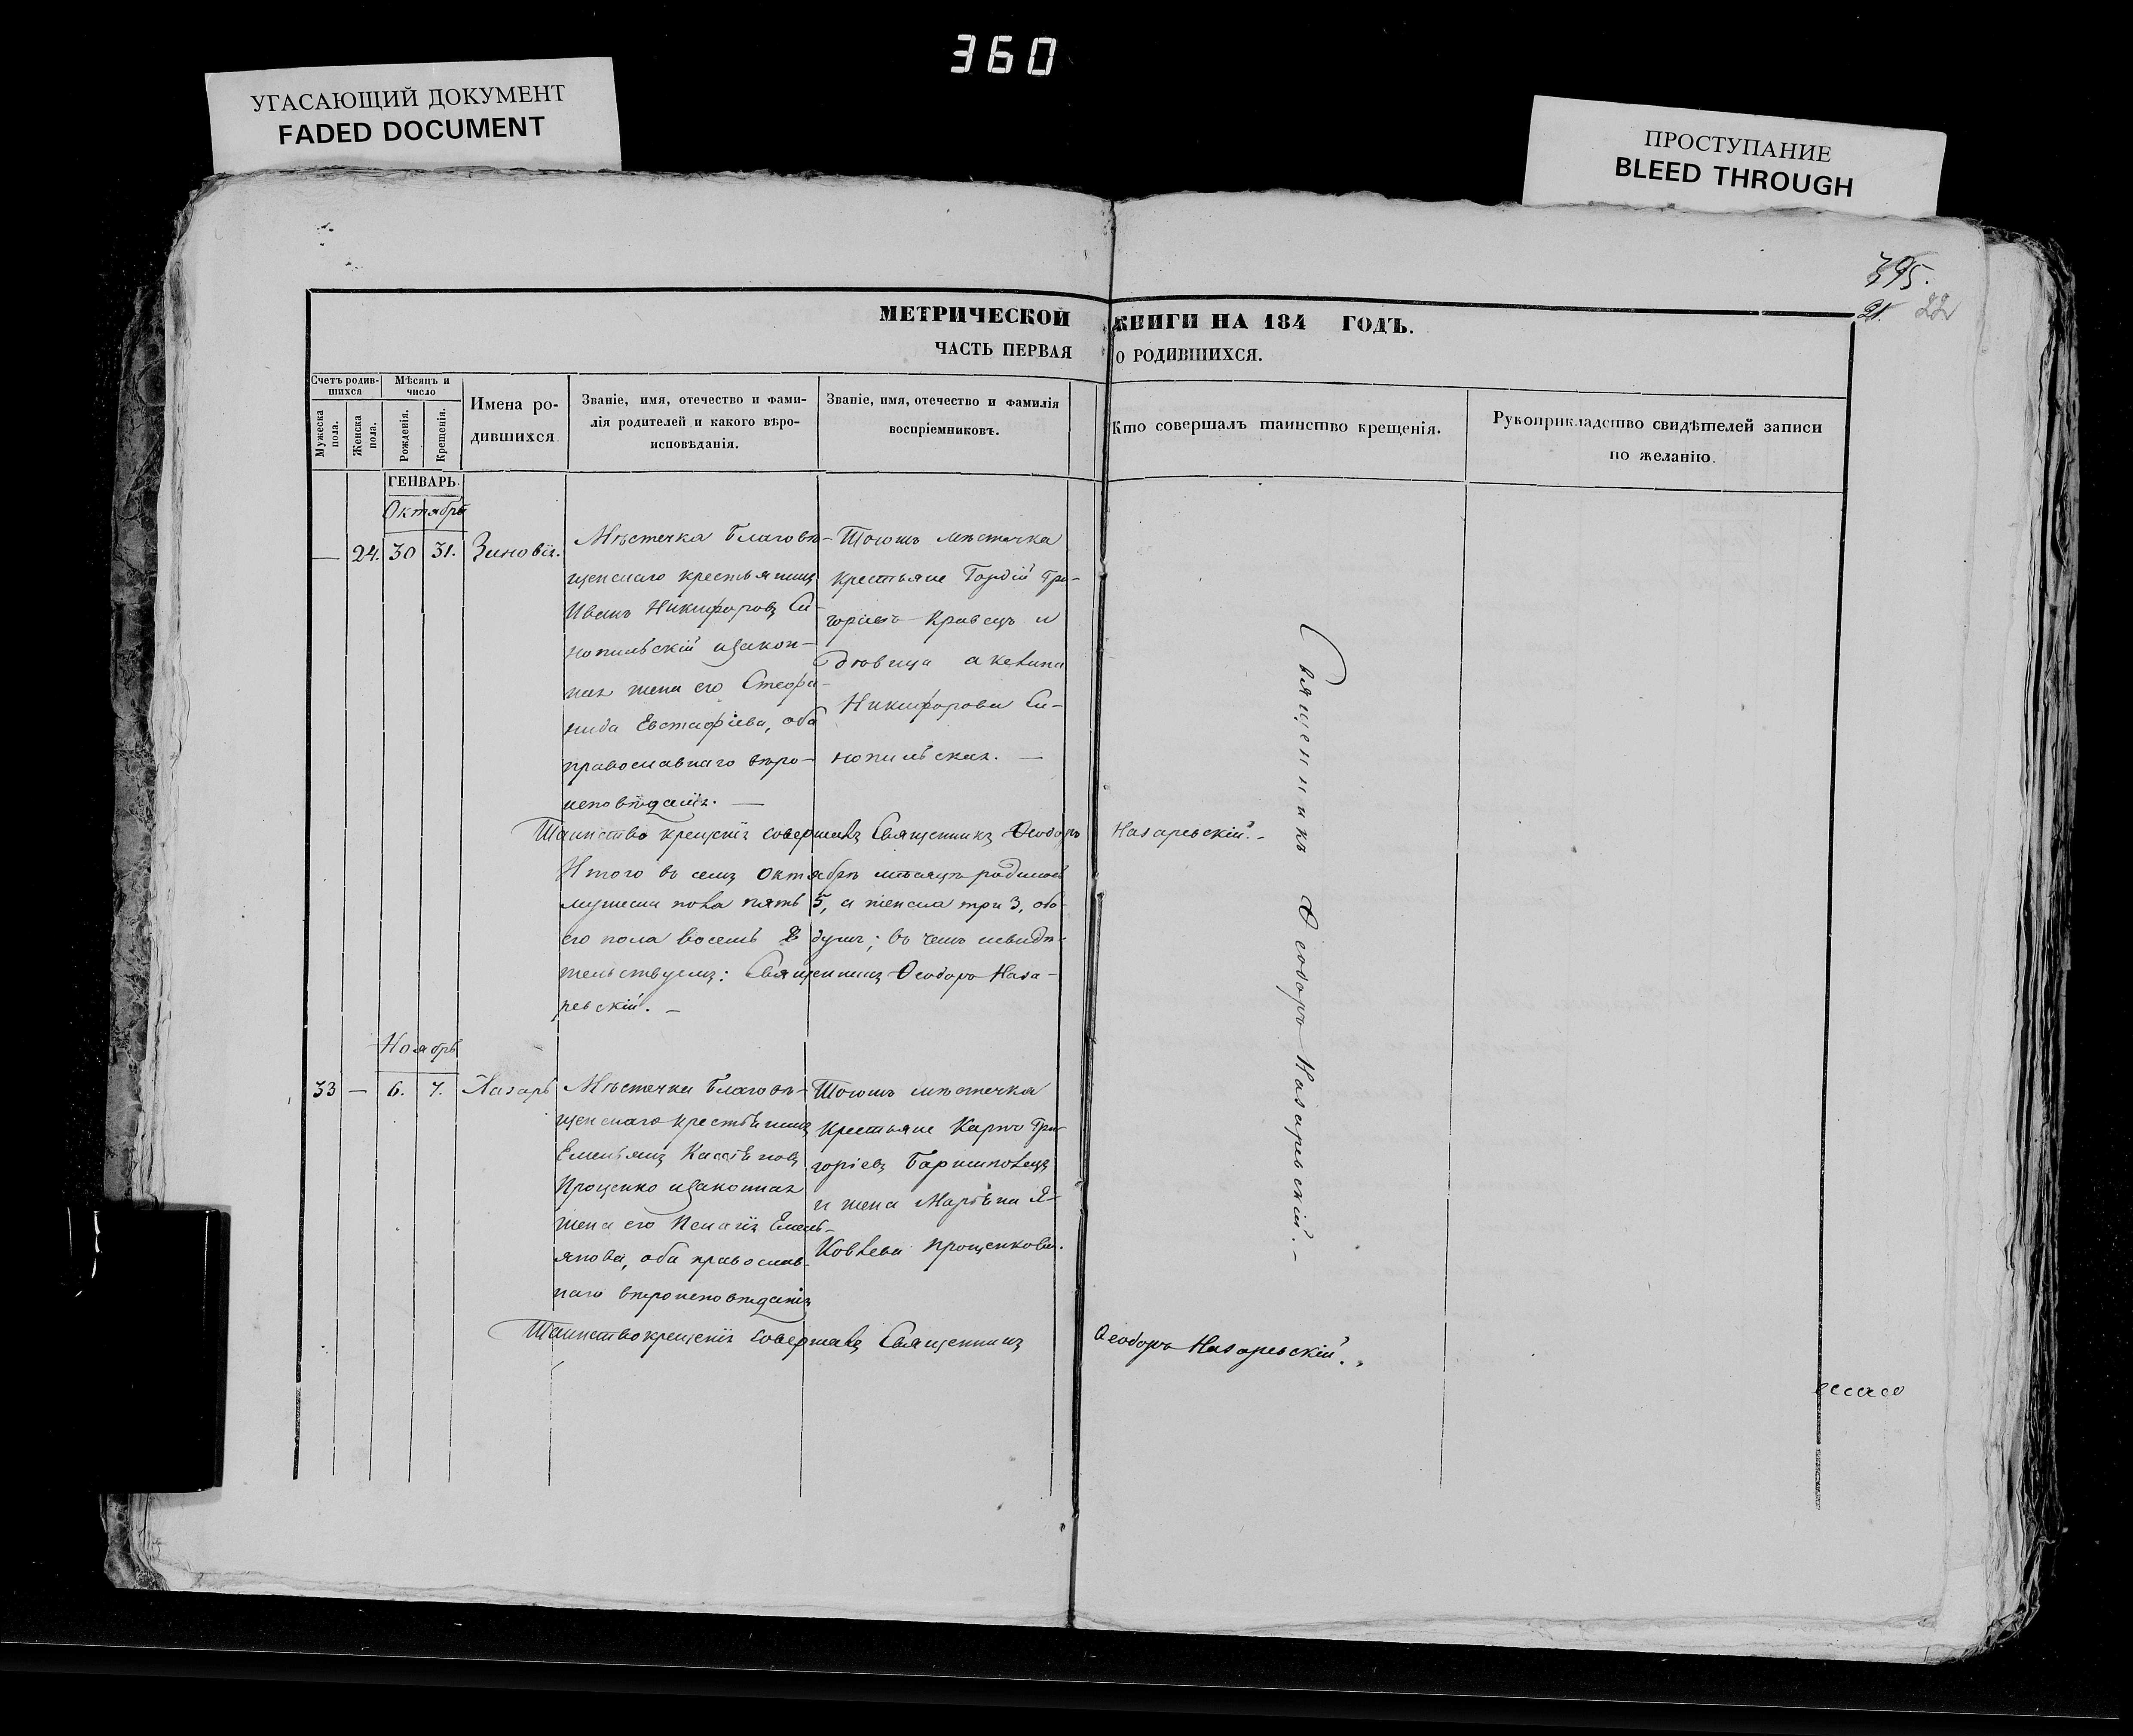 360
УГАСАЮЩИЙ ДОКУМЕНТ
FADED DOCUMENT
ПРОСТУПАНИЕ
BLEED THROUGH
395.
21. 22
МЕТРИЧЕСКОЙ КНИГИ НА 184 ГОДЪ.
ЧАСТЬ ПЕРВАЯ О РОДИВШИХСЯ.
Счетъ родив-
шихся
Мужеска
пола.
Женска
пола.
Мѣсяцъ и
число
Рожденія.
Крещенія.
Имена ро-
дившихся
Званіе, имя, отечество и фами-
лія родителей и какого вѣро-
исповѣданія.
Званіе, имя, отечество и фамилія
воспріемниковъ.
Кто совершалъ таинство крещенія.
Рукоприкладство свидѣтелей записи
по желанію.
ГЕНВАРЬ.
Октябрь
— 24. 30 31. Зиновія.
Мѣстечка Благовѣ-
щенскаго крестьянинъ
Иванъ Никифоровъ Си-
нопильскій изакон-
ная жена его Стефа-
нида Евстафіева, оба
православнаго вѣро-
исповѣданія. —
Тогожъ мѣстечка
крестьяне Гордій Гри-
горіевъ Кравецъ и
дѣвица акелина
Никифорова Си-
нопильская. —
Таинство крещенія совершалъ Священникъ Ѳеодоръ Назаревскій. -
Итого въ семъ Октябрѣ мѣсяцѣ родилось
мужеска пола пять 5, а женска три 3, обо-
его пола восемь 8 душъ; въ чемъ исвидѣ-
тельствуемъ: Священникъ Ѳеодоръ Наза-
ревскій. —
Священникъ Ѳеодоръ Назаревскій. -
Ноябрь
33 — 6. 7. Лазарь
Мѣстечка Благовѣ-
щенскаго крестьянинъ
Емельянъ Касьяновъ
Проценко изаконная
жена его Пелагія Емель-
янова, оба православ-
наго вѣроисповѣданія
Тогожъ мѣстечка
Крестьяне Карпъ Гри-
горіевъ
и жена Марьяна Я-
ковлева Проценкова.
Таинство крещенія совершалъ Священникъ Ѳеодоръ Назаревскій.